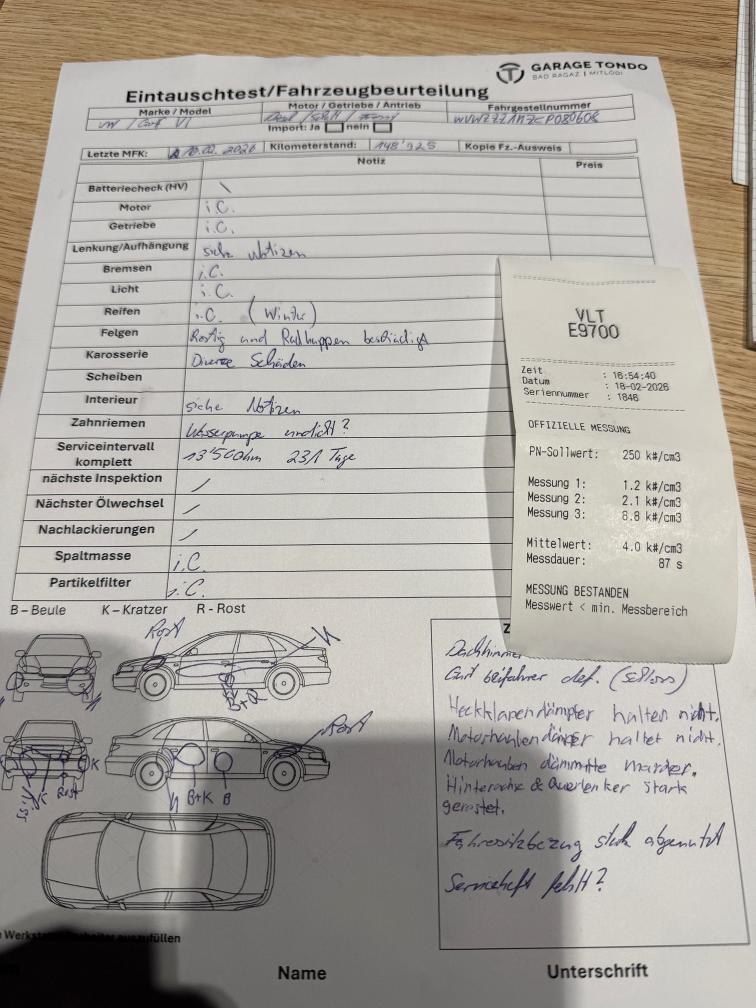 GARAGE TONDO
BAD RAGAZ | MITLÖDI
Eintauschtest/Fahrzeugbeurteilung
Marke / Model Motor / Getriebe / Antrieb Fahrgestellnummer
VW / Golf VI
Import: Ja nein
Letzte MFK: 10.02.2026 Kilometerstand: 148'925 Kopie Fz.-Ausweis
Notiz Preis
Batteriecheck (HV)
Motor i.O.
Getriebe i.O.
Lenkung/Aufhängung siehe Notizen
Bremsen i.O.
Licht i.O.
Reifen i.O. (Winter)
Felgen Rostig und Radkappen beschädigt
Karosserie Diverse Schäden
Scheiben
Interieur siehe Notizen
Zahnriemen Wasserpumpe undicht?
Serviceintervall komplett 13'500km 231 Tage
nächste Inspektion /
Nächster Ölwechsel /
Nachlackierungen /
Spaltmasse i.O.
Partikelfilter i.O.
B – Beule K – Kratzer R - Rost
Rost
K
B+R
Rost
K
Rost
K
B+K
B
VLT
E9700
Zeit : 16:54:40
Datum : 18-02-2026
Seriennummer : 1846
OFFIZIELLE MESSUNG
PN-Sollwert: 250 k#/cm3
Messung 1: 1.2 k#/cm3
Messung 2: 2.1 k#/cm3
Messung 3: 8.8 k#/cm3
Mittelwert: 4.0 k#/cm3
Messdauer: 87 s
MESSUNG BESTANDEN
Messwert < min. Messbereich
Z
Gurt beifahrer def. (Schloss)
Heckklapendämpfer halten nicht.
Motorhaubendämper haltet nicht.
Motorhauben dämmtte marder.
Hinterachse & Querlenker stark
gerostet.
Fahrersitzbezug stark abgenutzt
Serviceheft fehlt?
auszufüllen
Name
Unterschrift